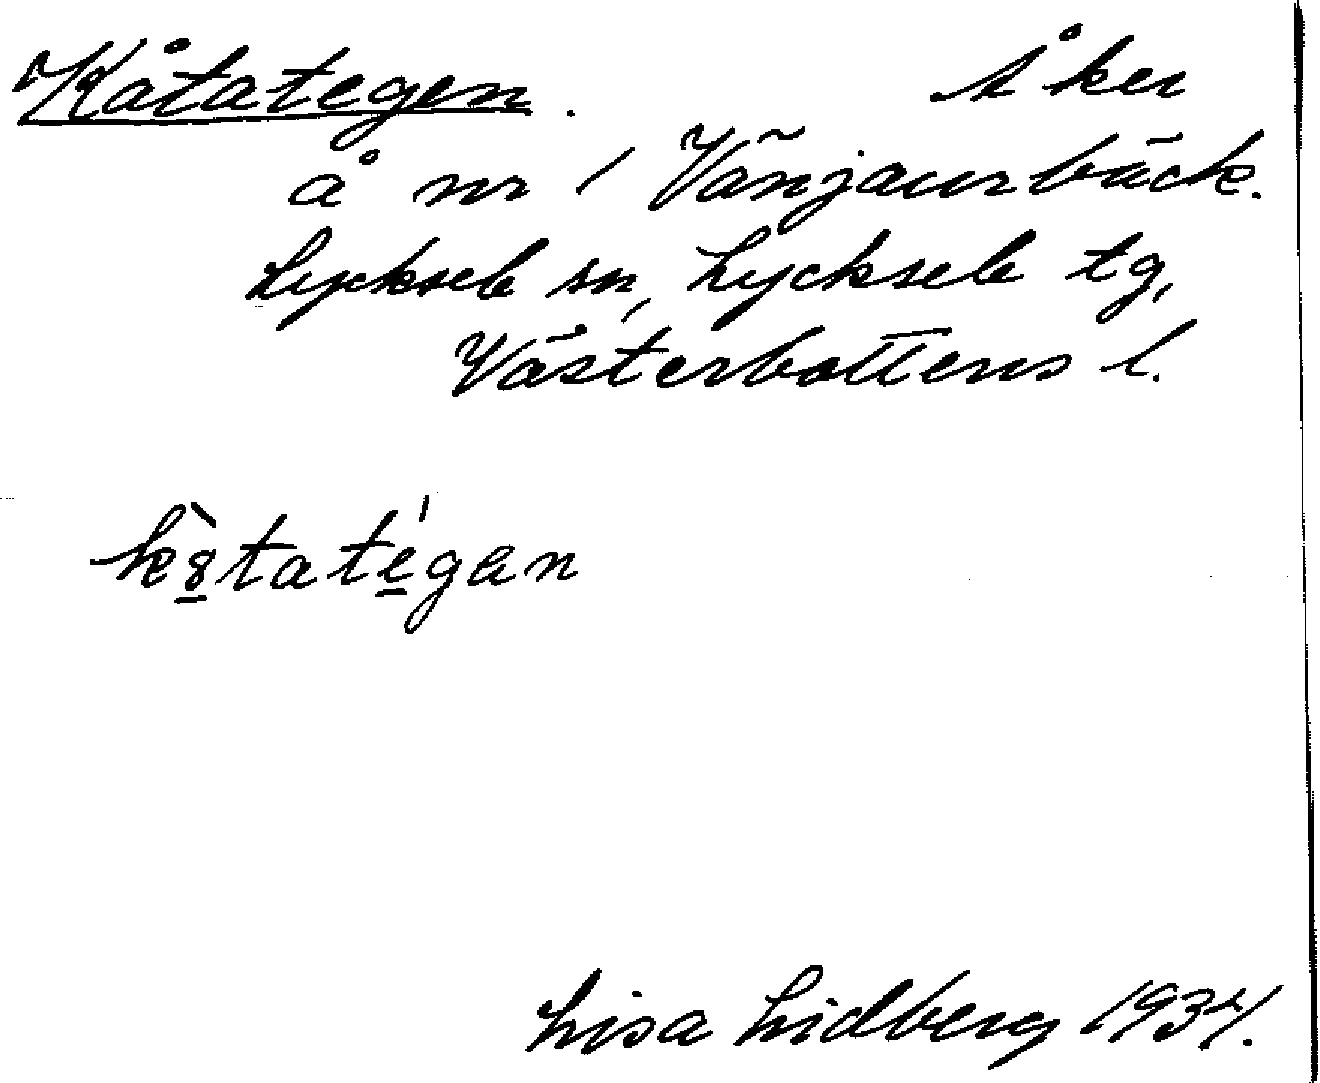 Kåtategen. Åker
å nr 1 Vänjaurbäck.
Lycksele sn, Lycksele tg,
Västerbottens l.
kȣ̀tatégan
Lisa Lidberg 1934.